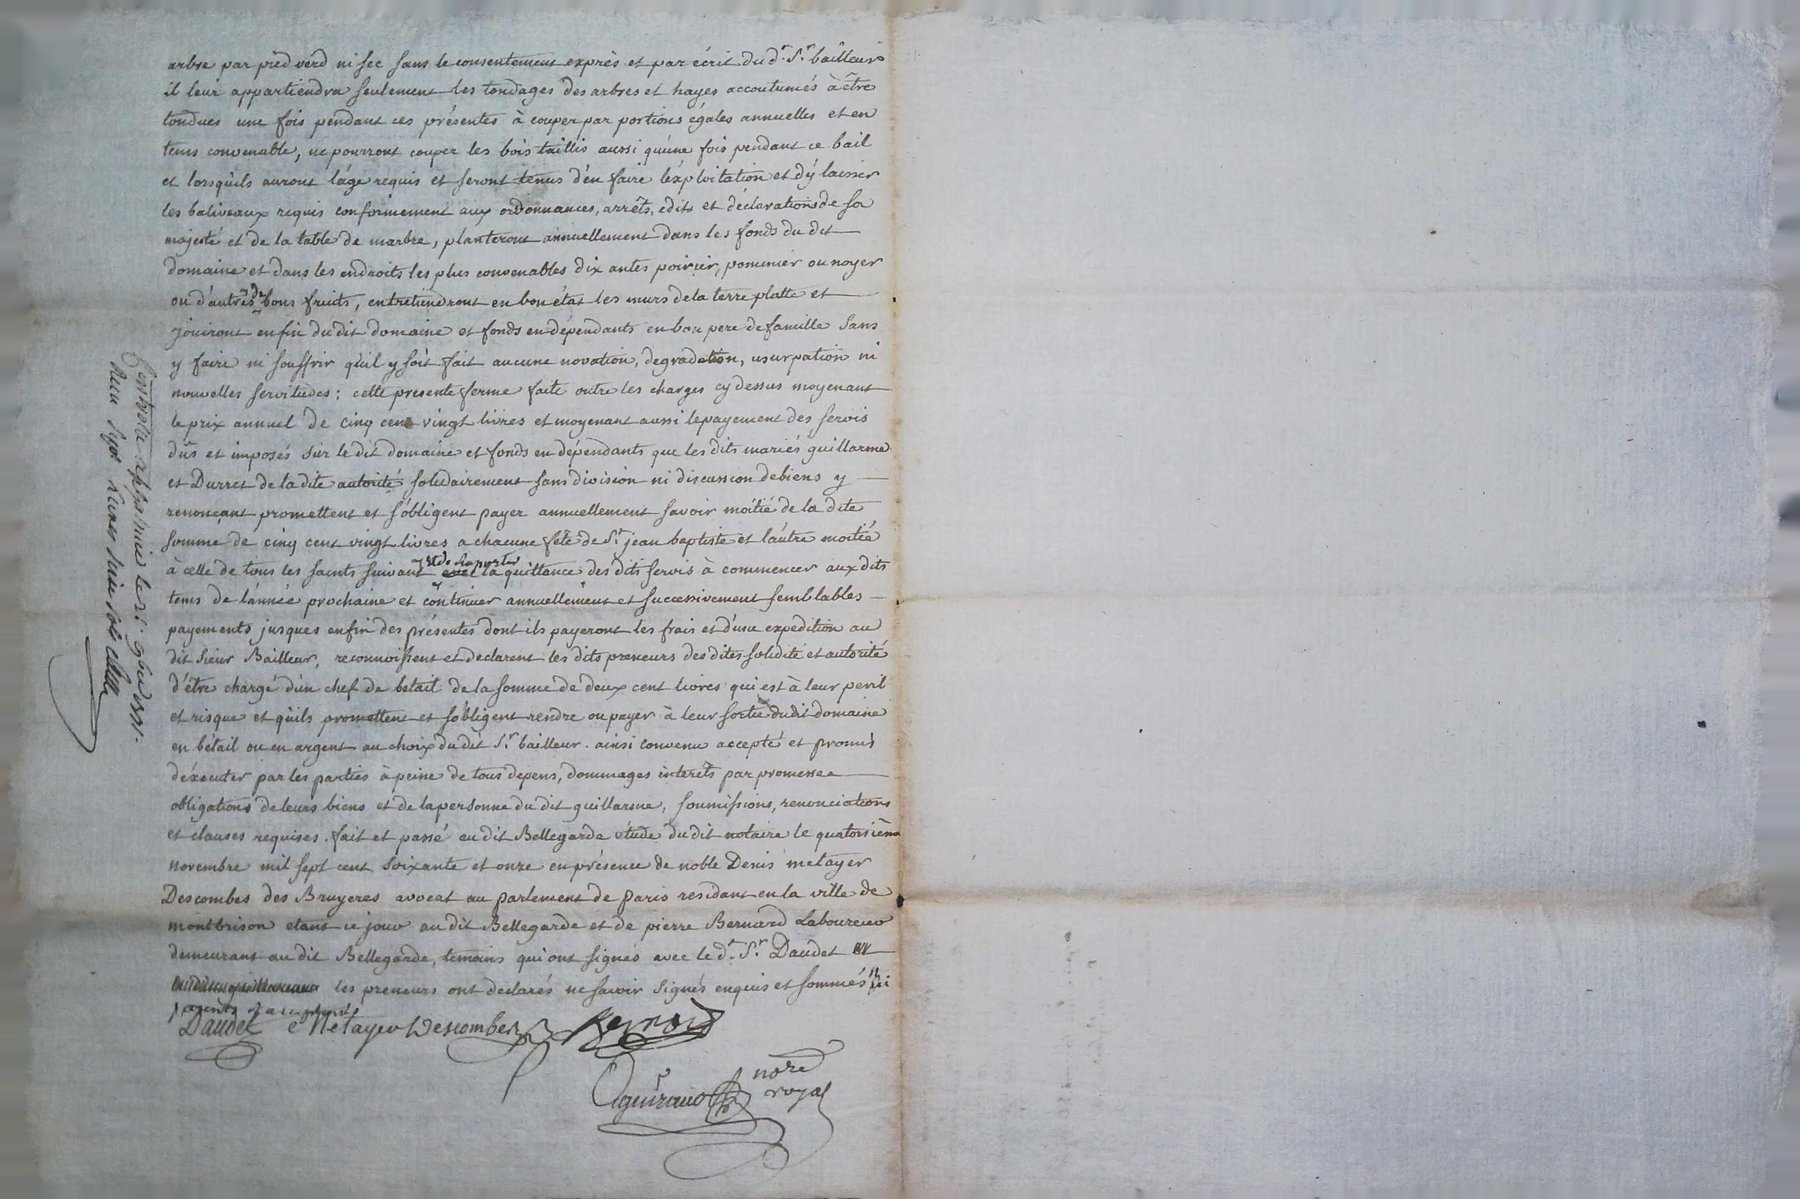 arbre par pied verd ni sec sans le consentement exprès et par écrit du d.r S.r bailleur
il leur appartiendra seulement les tondages des arbres et hayes accoutumés à être
tondues une fois pendant ces présentes à couper par portions égales annuelles et en
tems convenable, ne pourront couper les bois taillis aussi qu'une fois pendant ce bail
et lorsqu'ils auront l'age requis et seront tenus d'en faire l'exploitation et d'y laisser
les baliveaux requis conformement aux ordonnances, arrêts, edits et déclarations de sa
majesté et de la table de marbre, planteront annuellement dans les fonds du dit
domaine et dans les endroits les plus convenables dix antes poirier, pommier ou noyer
ou d'autres de bons fruits, entretiendront en bon état les murs de la terre platte et
jouiront enfin du dit domaine et fonds en dépendants en bon pere de famille sans
y faire ni souffrir qu'il y soit fait aucune novation, degradation, usurpation ni
nouvelles servitudes; cette presente ferme faite outre les charges cy dessus moyenant
le prix annuel de cinq cent vingt livres et moyenant aussi le payement des servis
dûs et imposés sur le dit domaine et fonds en dépendants que les dits mariés guillarme
et Durret de la dite autorité solidairement sans division ni discussion de biens y
renonçant promettent et s'obligent payer annuellement savoir moitié de la dite
somme de cinq cent vingt livres a chacune fête de S.t jean baptiste et l'autre moitié
à celle de tous les saints suivant et de suporter la quittance des dits servis à commencer aux dits
tems de l'année prochaine et continuer annuellement et successivement semblables
payements jusques enfin des présentes dont ils payeront les frais et d'une expedition au
dit sieur Bailleur, reconnoissent et declarent les dits preneurs des dites solidité et autorité
d'être chargé d'un chef de betail de la somme de deux cent livres qui est à leur peril
et risque et qu'ils promettent et s'obligent rendre ou payer à leur sortie du dit domaine
en bétail ou en argent au choix du dit S.r bailleur. ainsi convenu accepté et promis
d'éxecuter par les parties à peine de tous depens, dommages interêts par promesse
obligations de leurs biens et de la personne du dit guillarme, soumissions, renonciations
et clauses requises. fait et passé au dit Bellegarde étude du dit notaire le quatorsième
novembre mil sept cent soixante et onze en présence de noble Denis metayer
Descombes des Bruyeres avocat au parlement de paris residant en la ville de
montbrison etant ce jour au dit Bellegarde et de pierre Bernard Laboureur
demeurant au dit Bellegarde, temoins qui ont signés avec le d.t S.r Daudet
les preneurs ont declarés ne savoir signés enquis et sommés
Daudet Metayer Descombes Bernard
no.re
royal